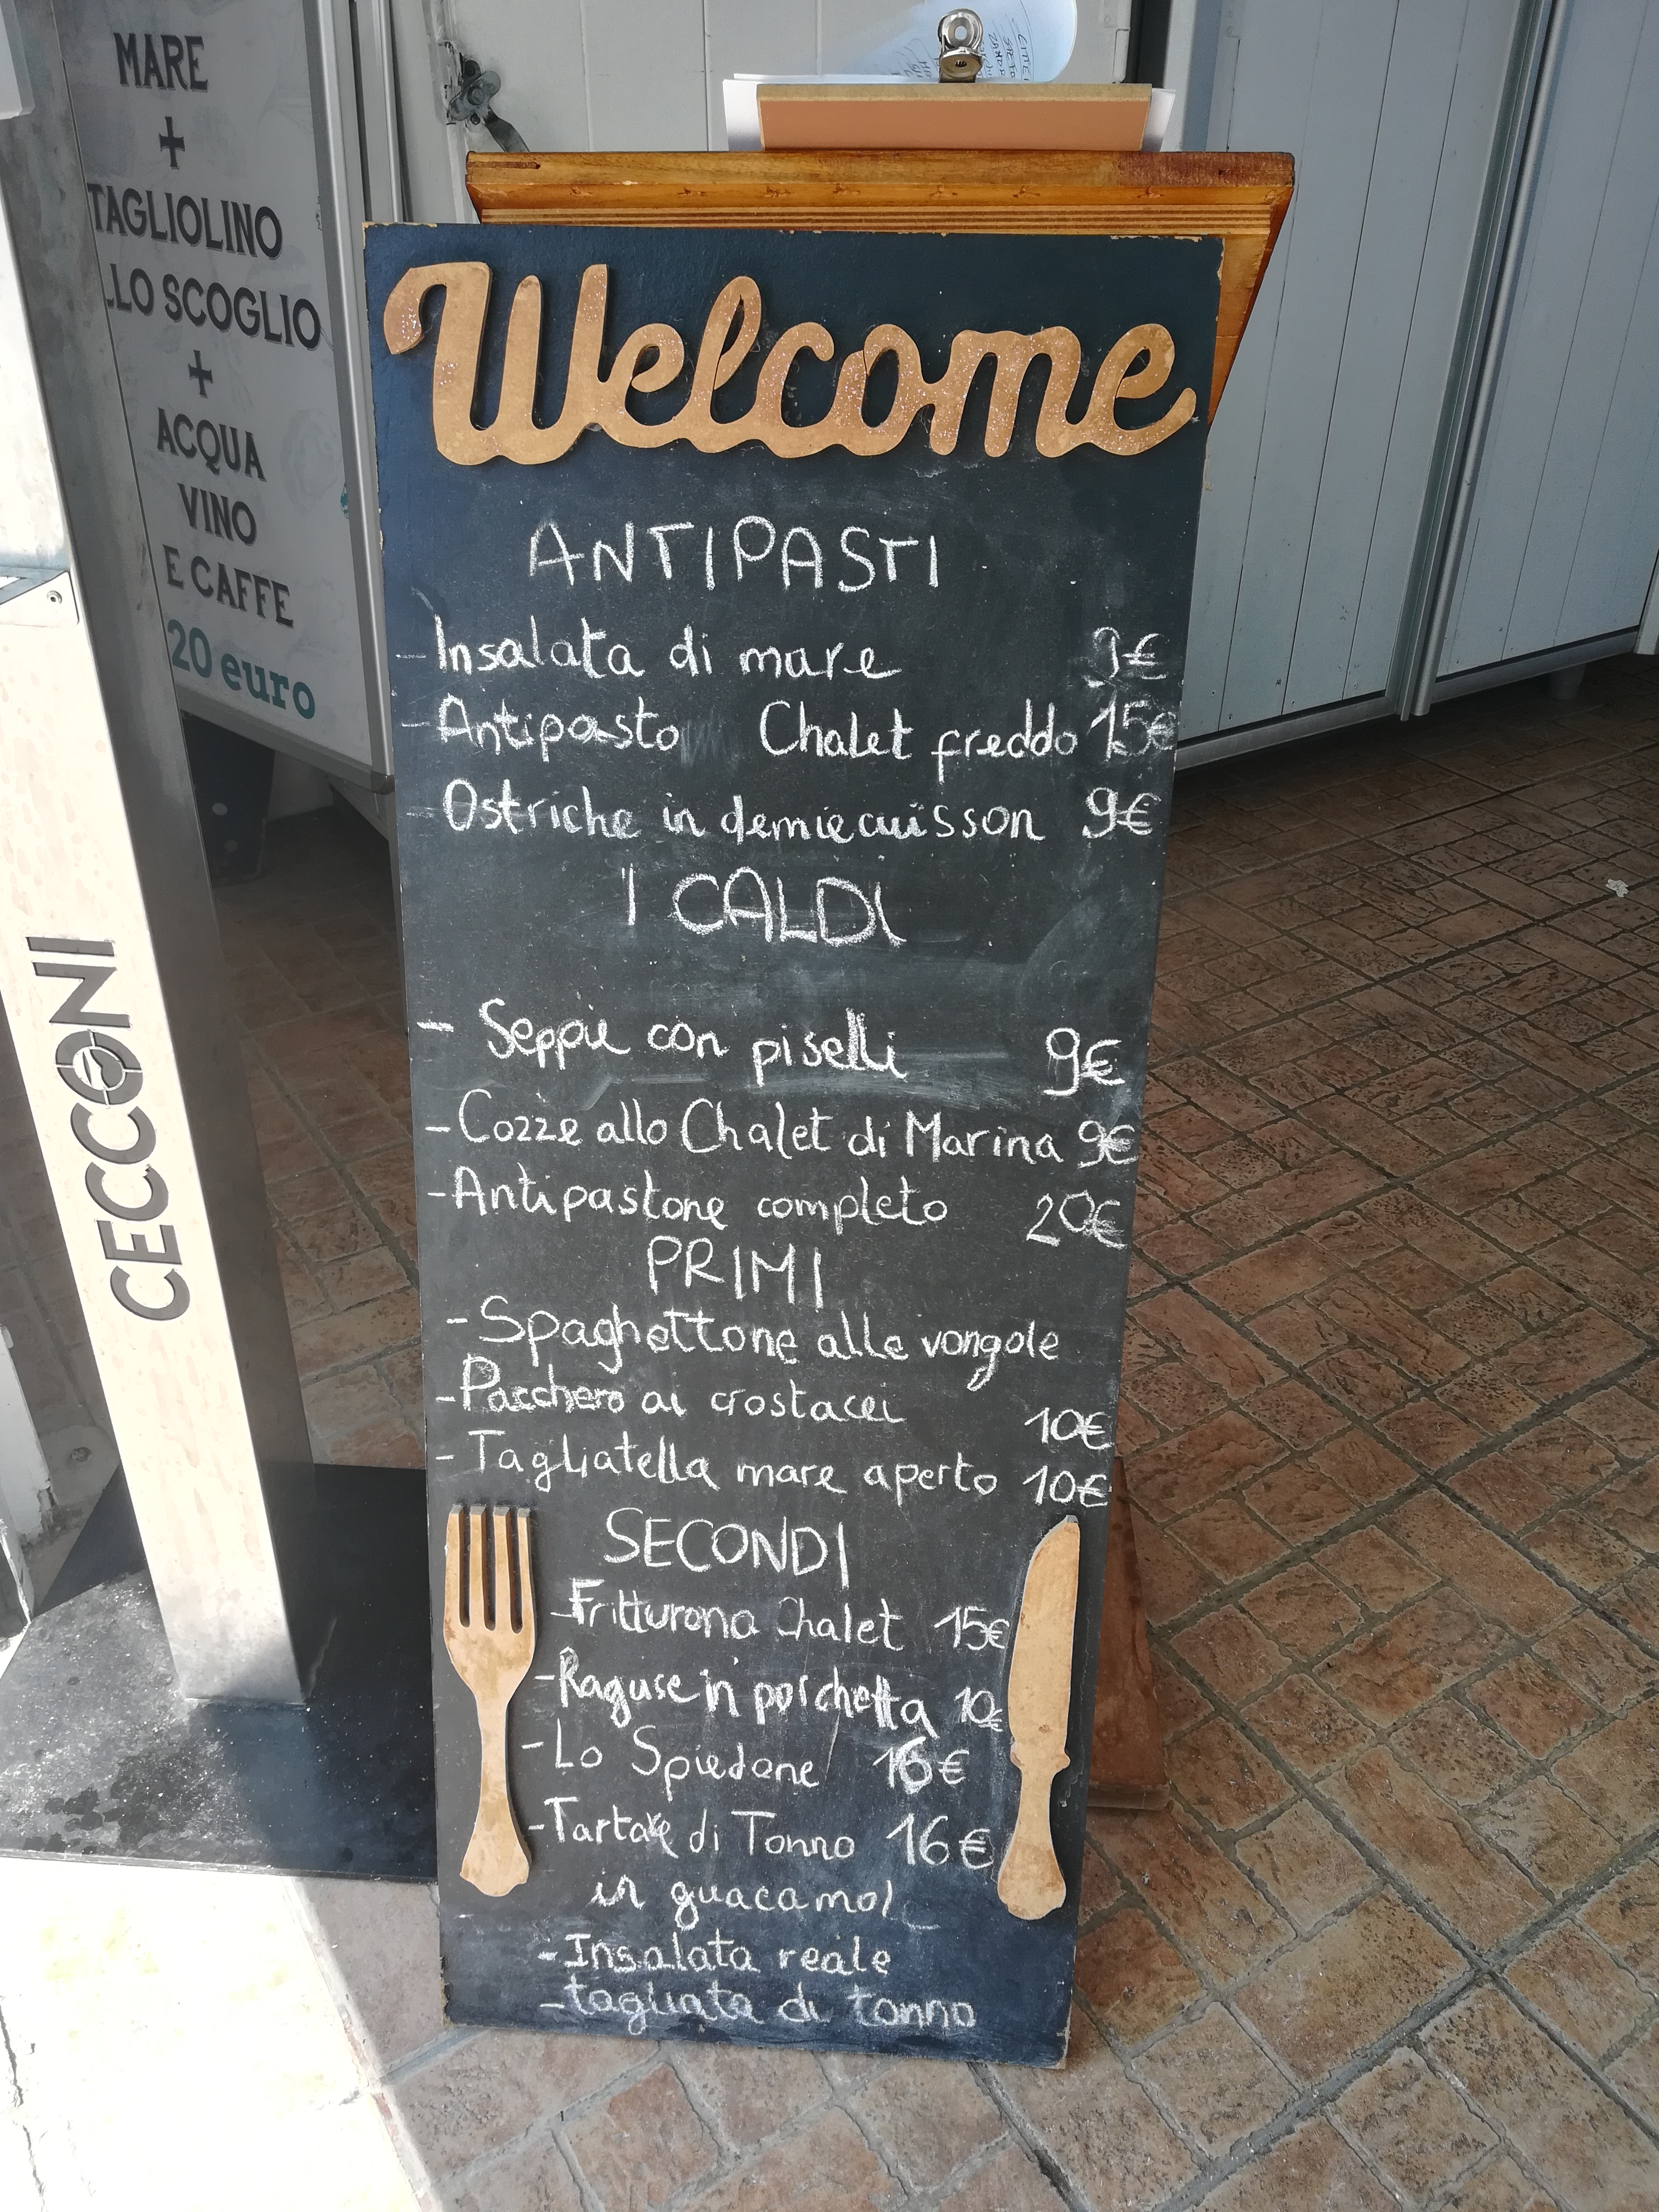 MARE
+
TAGLIOLINO
LLO SCOGLIO
+
ACQUA
VINO
E CAFFE
20 euro
CECCONI
Welcome
ANTIPASTI
- Insalata di mare 9€
- Antipasto Chalet freddo 15€
- Ostriche in demiecuisson 9€
I CALDI
- Seppie con piselli 9€
- Cozze allo Chalet di Marina 9€
- Antipastone completo 20€
PRIMI
- Spaghettone alle vongole
- Pacchero ai crostacei 10€
- Tagliatella mare aperto 10€
SECONDI
- Fritturona Chalet 15€
- Raguse in porchetta 10€
- Lo Spiedone 16€
- Tartare di Tonno 16€
in guacamol
- Insalata reale
- tagliata di tonno